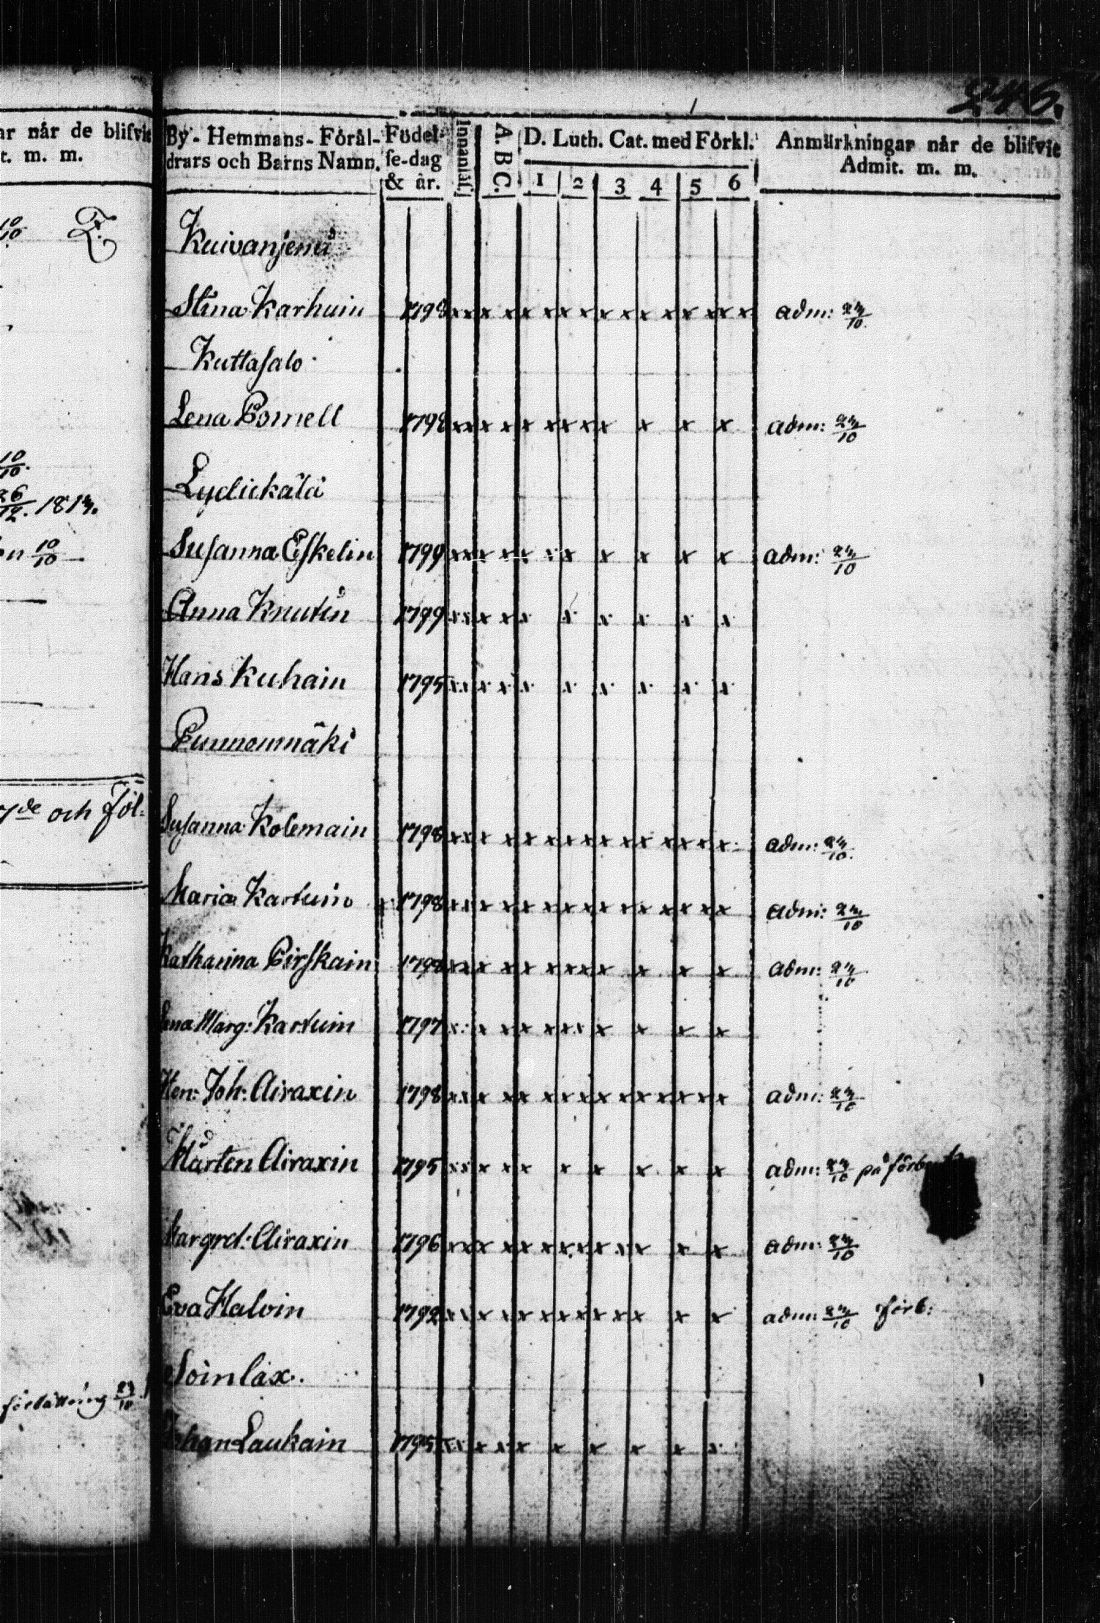 246.
när de blifvit
t. m. m.
10/10. F.
10/10.
26/12. 1813.
10/10
och Föl-
författning 23/10
By- Hemmans- Föräl- Födel- Innanläs. A.B.C. D. Luth. Cat. med Förkl. Anmärkningar när de blifvit
drars och Barns Namn. se-dag Admit. m. m.
& år. 1 2 3 4 5 6
Kuivanjemi
Stina Karhuin 1798 xx x x x x x x x x x x x x x x adm: 23/10.
Kuttasalo
Lena Pomell 1798 xx x x x x x x x x x x adm: 23/10
Lydickälä
Susanna Eskelin 1799 xx x x x x x x x x x adm: 23/10
Anna Knutin 1799 xx x x x x x x x x
Hans Kuhain 1795 xx x x x x x x x x
Punnonmäki
Susanna Kolemain 1798 xx x x x x x x x x x x x x x adm: 23/10.
Maria Kartuin 1798 xx x x x x x x x x x x x x x adm: 23/10
Katharina Pirskain 1798 xx x x x x x x x x x x adm: 23/10
Lena Marg: Kartuin 1797 x x x x x x x x x x x
Hen: Joh: Airaxin 1798 xx x x x x x x x x x x x x x adm: 23/10
Mårten Airaxin 1795 xx x x x x x x x x adm: 23/10 på förb
Margret: Airaxin 1796 xx x x x x x x x x x x x adm: 23/10
Eva Halvin 1792 xx x x x x x x x x x x x adm: 23/10 förb:
Soinlax.
Johan Laukain 1795 xx x x x x x x x x